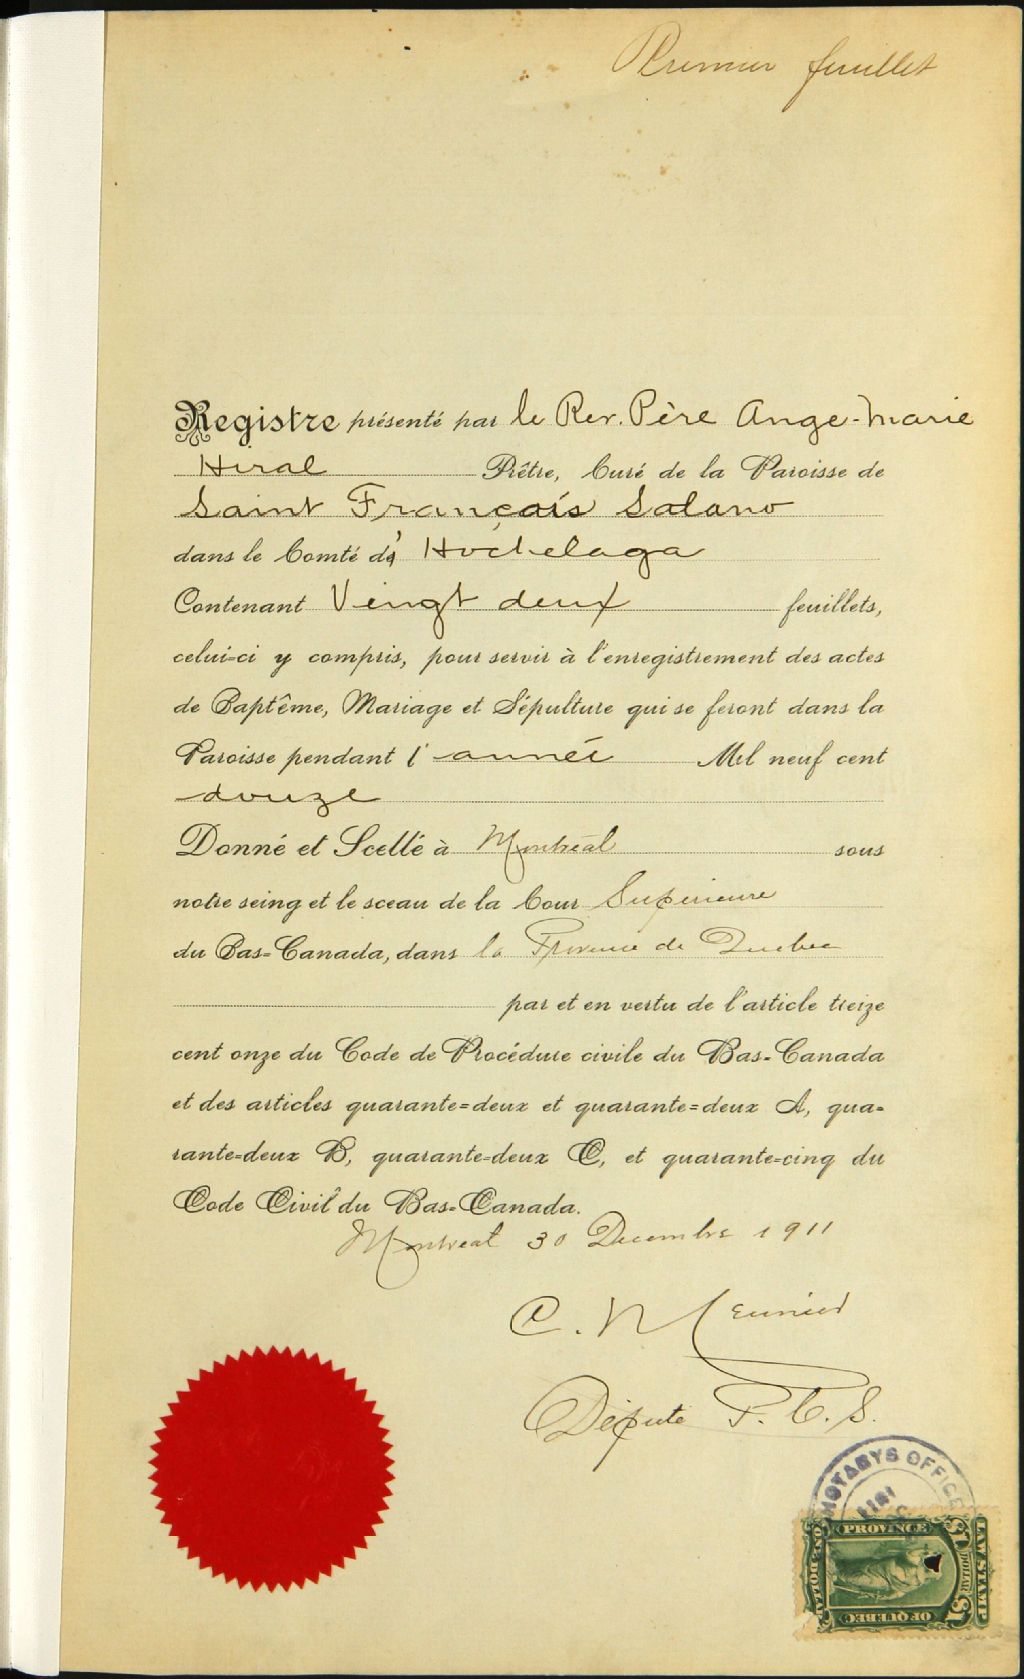 Premier feuillet
Registre présenté par le Rev. Père Ange-Marie
Hiral Prêtre, Curé de la Paroisse de
Saint Français Solano
dans le Comté d' Hochelaga
Contenant Vingt deux feuillets,
celui=ci y compris, pour servir à l'enregistrement des actes
de Baptême, Mariage et Sépulture qui se feront dans la
Paroisse pendant l'année Mil neuf cent
douze
Donné et Scellé à Montréal sous
notre seing et le sceau de la Cour Supérieure
du Bas=Canada, dans la Province de Quebec
par et en vertu de l'article treize
cent onze du Code de Procédure civile du Bas=Canada
et des articles quarante=deux et quarante=deux A, qua=
rante=deux B, quarante=deux C, et quarante=cinq du
Code Civil du Bas=Canada.
Montreal 30 Decembre 1911
C. Meunier
Député P. C. S.
NOTARYS OFFICE
PROVINCE
OF QUEBEC
ONE DOLLAR
$1 DOLLAR $1
LAW STAMP